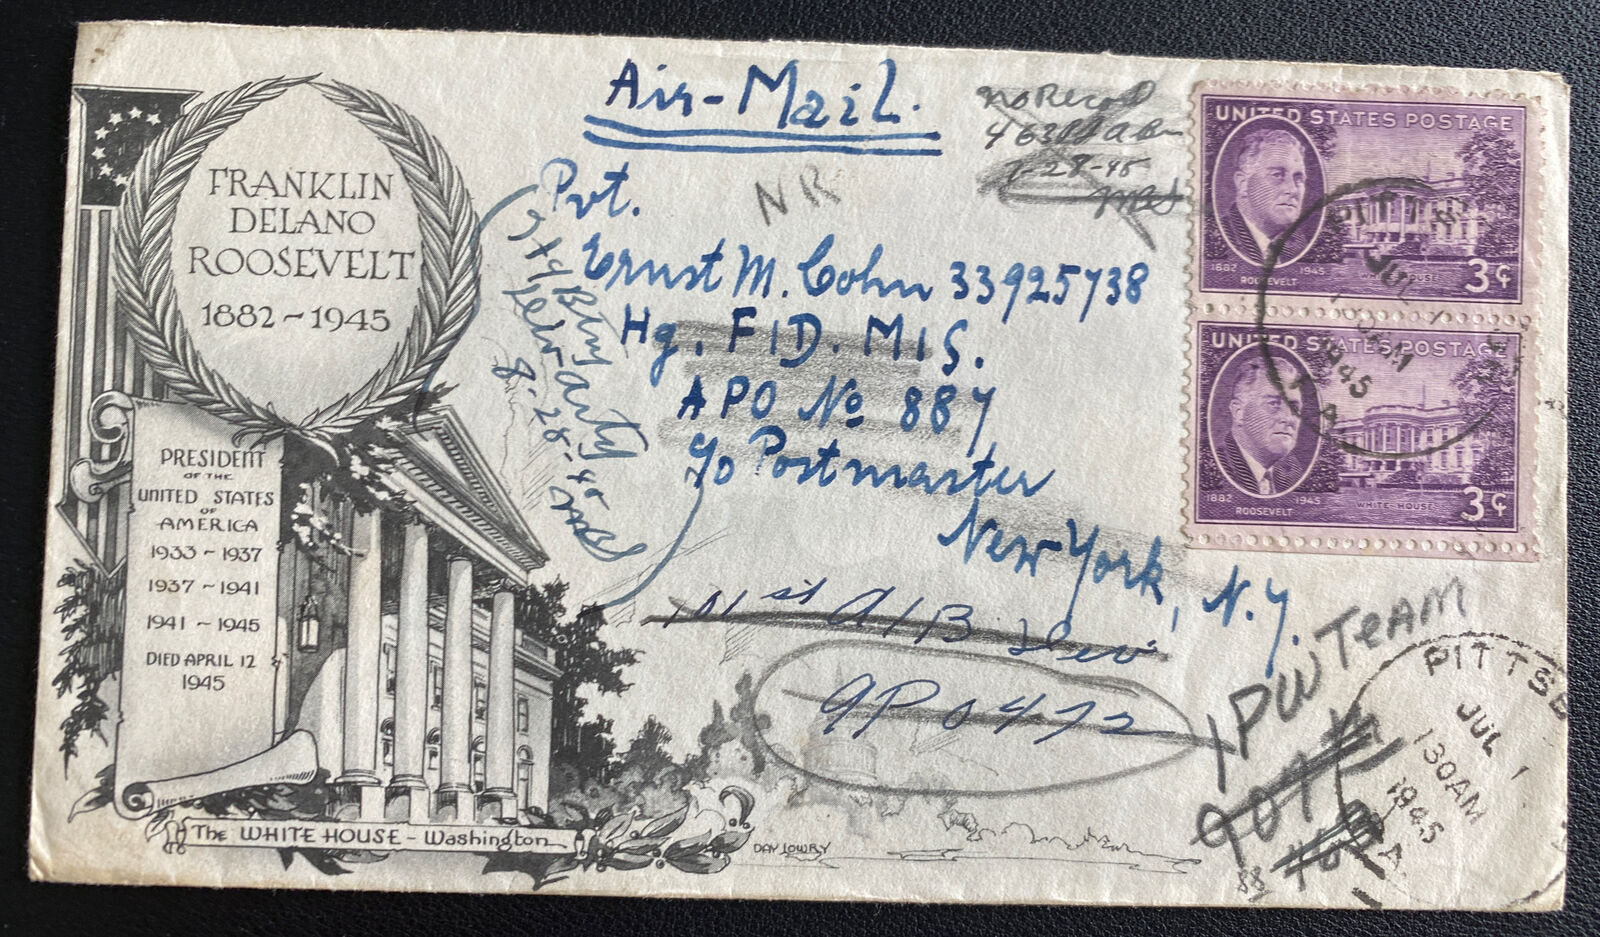 FRANKLIN
DELANO
ROOSEVELT
1882 ~ 1945
PRESIDENT
OF THE
UNITED STATES
OF
AMERICA
1933 ~ 1937
1937 ~ 1941
1941 ~ 1945
DIED APRIL 12
1945
The WHITE HOUSE - Washington
DAY LOWRY
Air-Mail.
No Record
7-28-45
NR
Pvt.
Ernst M. Cohn 33925738
Hq. FID. MIS.
APO No 887
c/o Postmaster
New York, N.Y.
Btry
8-28-45
101st A/B Div
APO 472
IPW TEAM
88
UNITED STATES POSTAGE
1882 1945
ROOSEVELT
HOUSE
3¢
UNITED STATES POSTAGE
1882 1945
ROOSEVELT
WHITE HOUSE
3¢
PITTS
JUL
1945
PA
PITTSB
JUL 1
130AM
1945